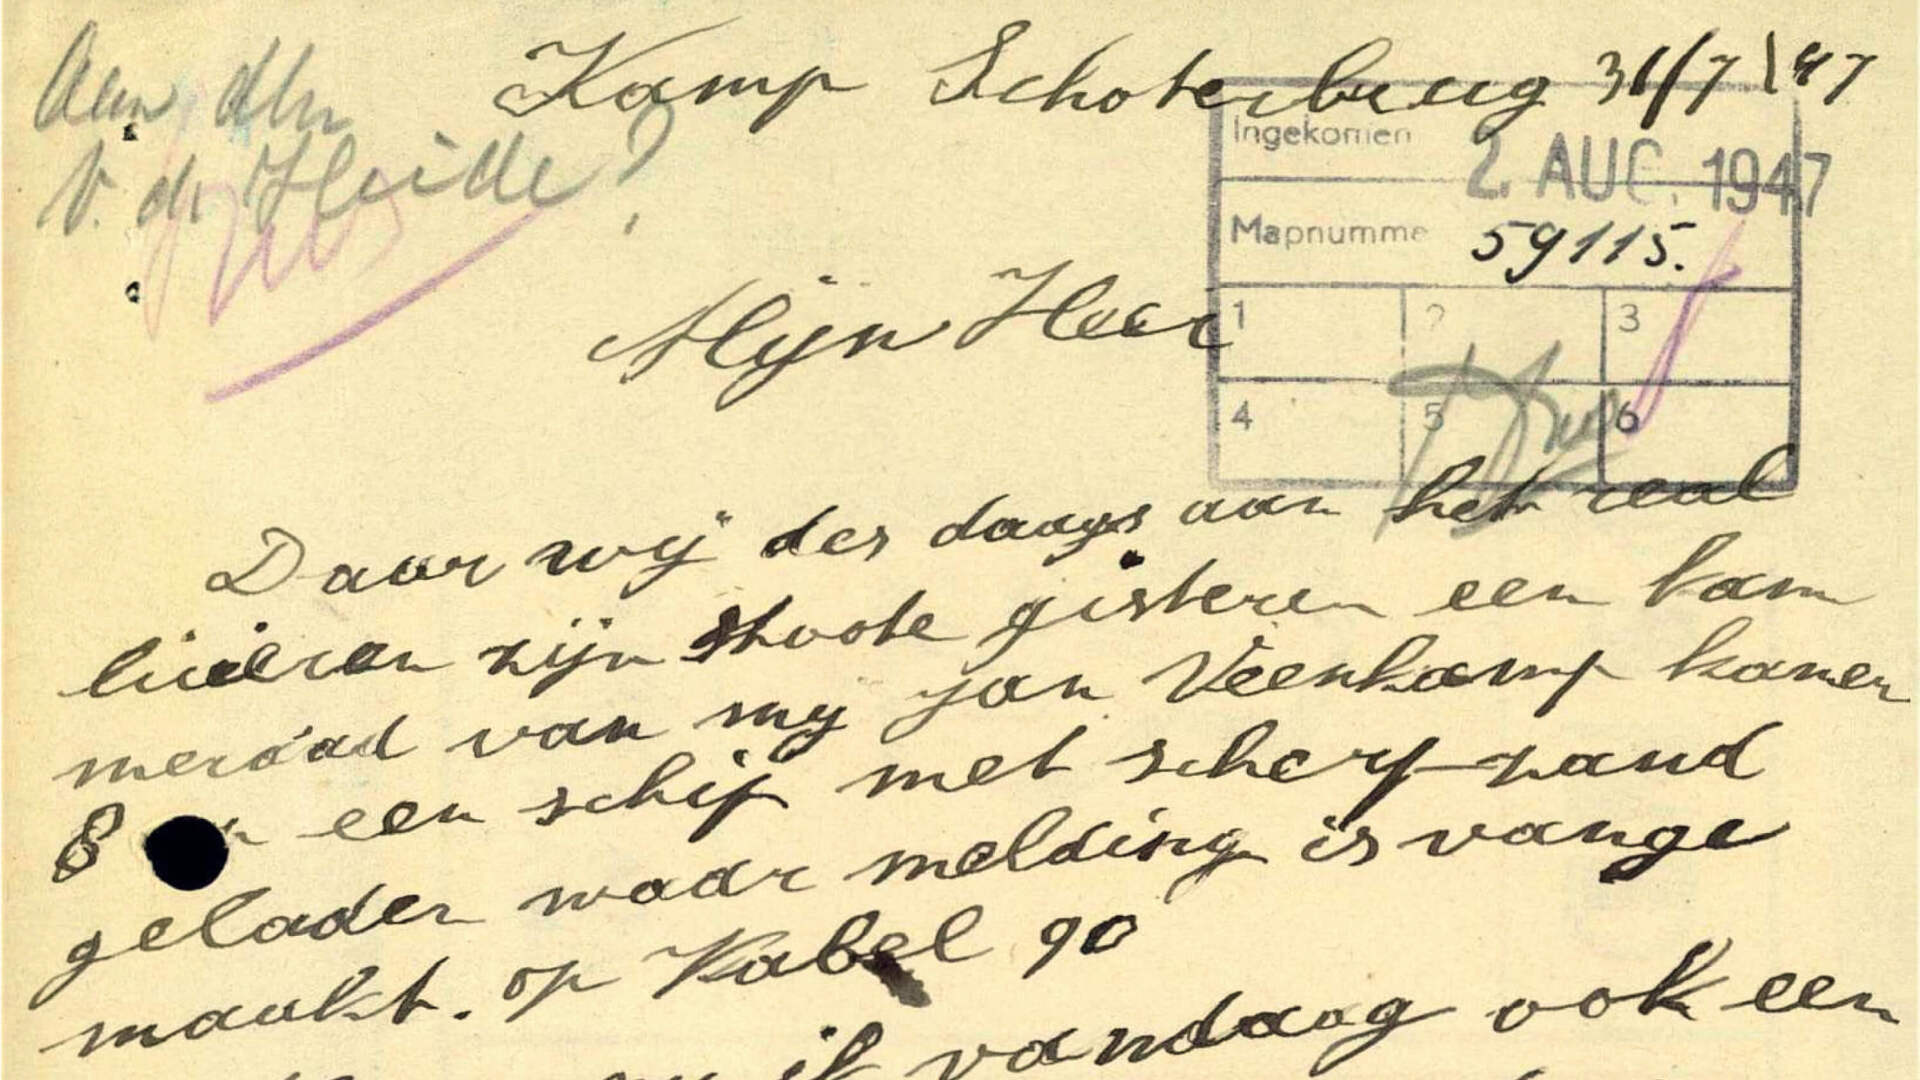 Aan dhr
v. d. Heide?
Kamp Schoterbrug 31/7 '47
Ingekomen 2 AUG. 1947
Mapnumme 59115.
1 2 3
4 5 6
Mijn Heer
Daar wij des daags aan het real
lieeren zijn stoote gisteren een kam
meraad van my jan Veenkamp kamer
8 een schijf met scherf zand
geladen waar melding is vange
maakt. op Kabel 90
ik vandaag ook een